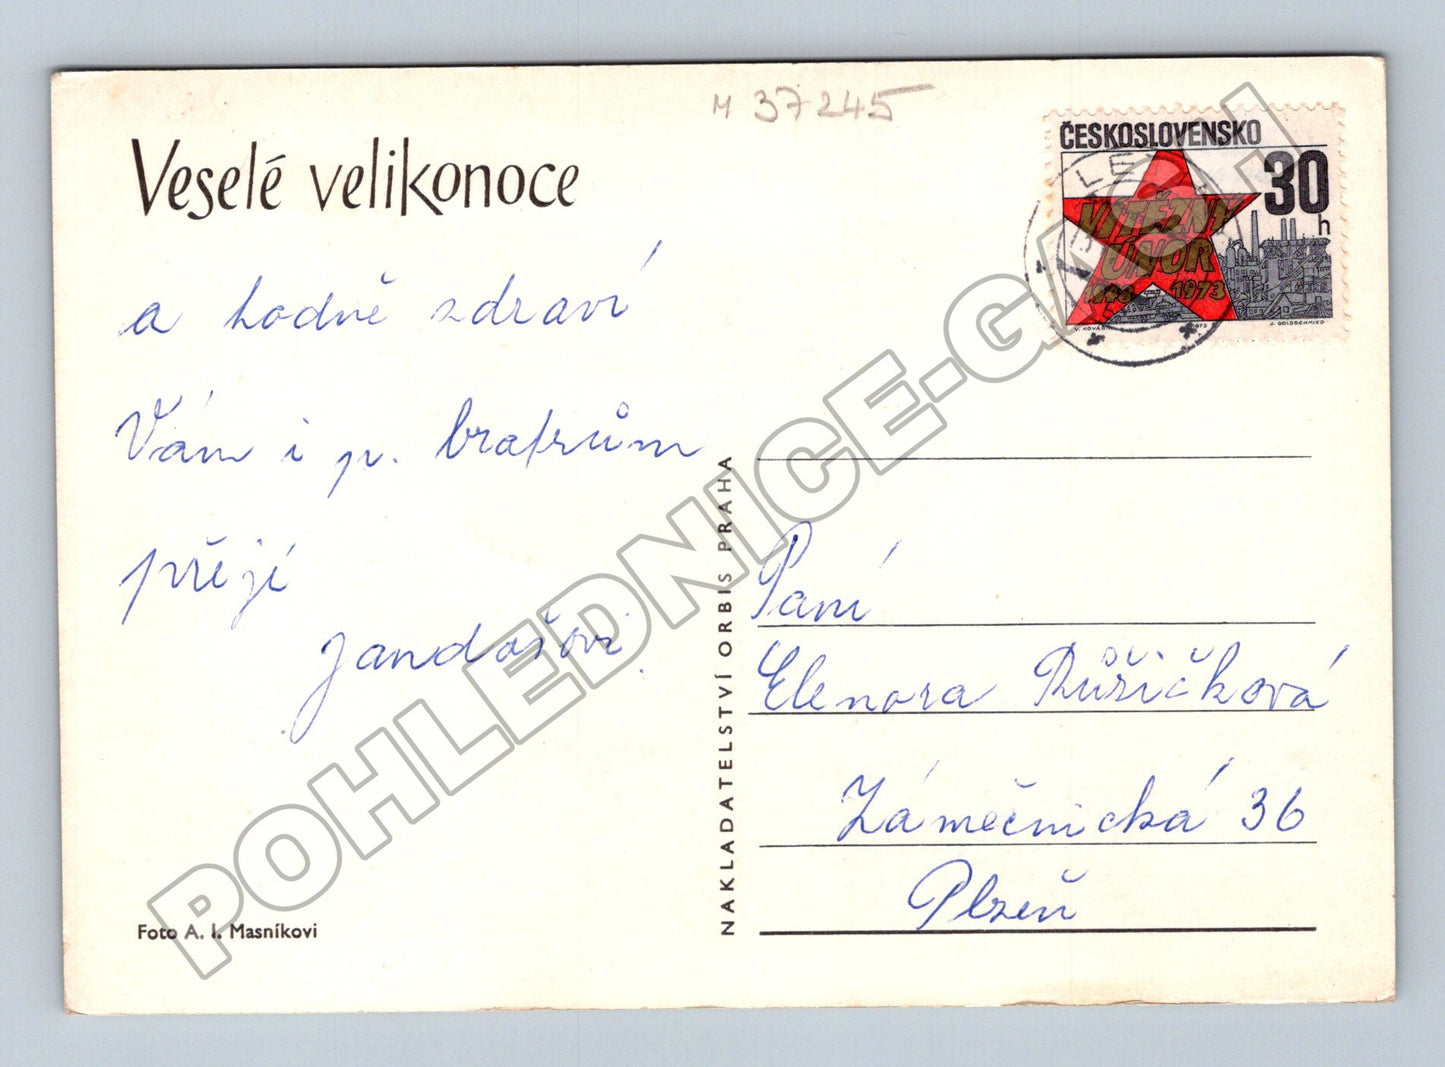 M 37245
Veselé velikonoce
a hodně zdraví
Vám i p. bratrům
přejí
Jandašovi.
Foto A. I. Masníkovi
NAKLADATELSTVÍ ORBIS PRAHA
ČESKOSLOVENSKO
30
h
VÍTĚZNÝ
ÚNOR
1948 1973
J. GOLDSCHMIED
Paní
Elenora Růžičková
Zámečnická 36
Plzeň
POHLEDNICE-GACH